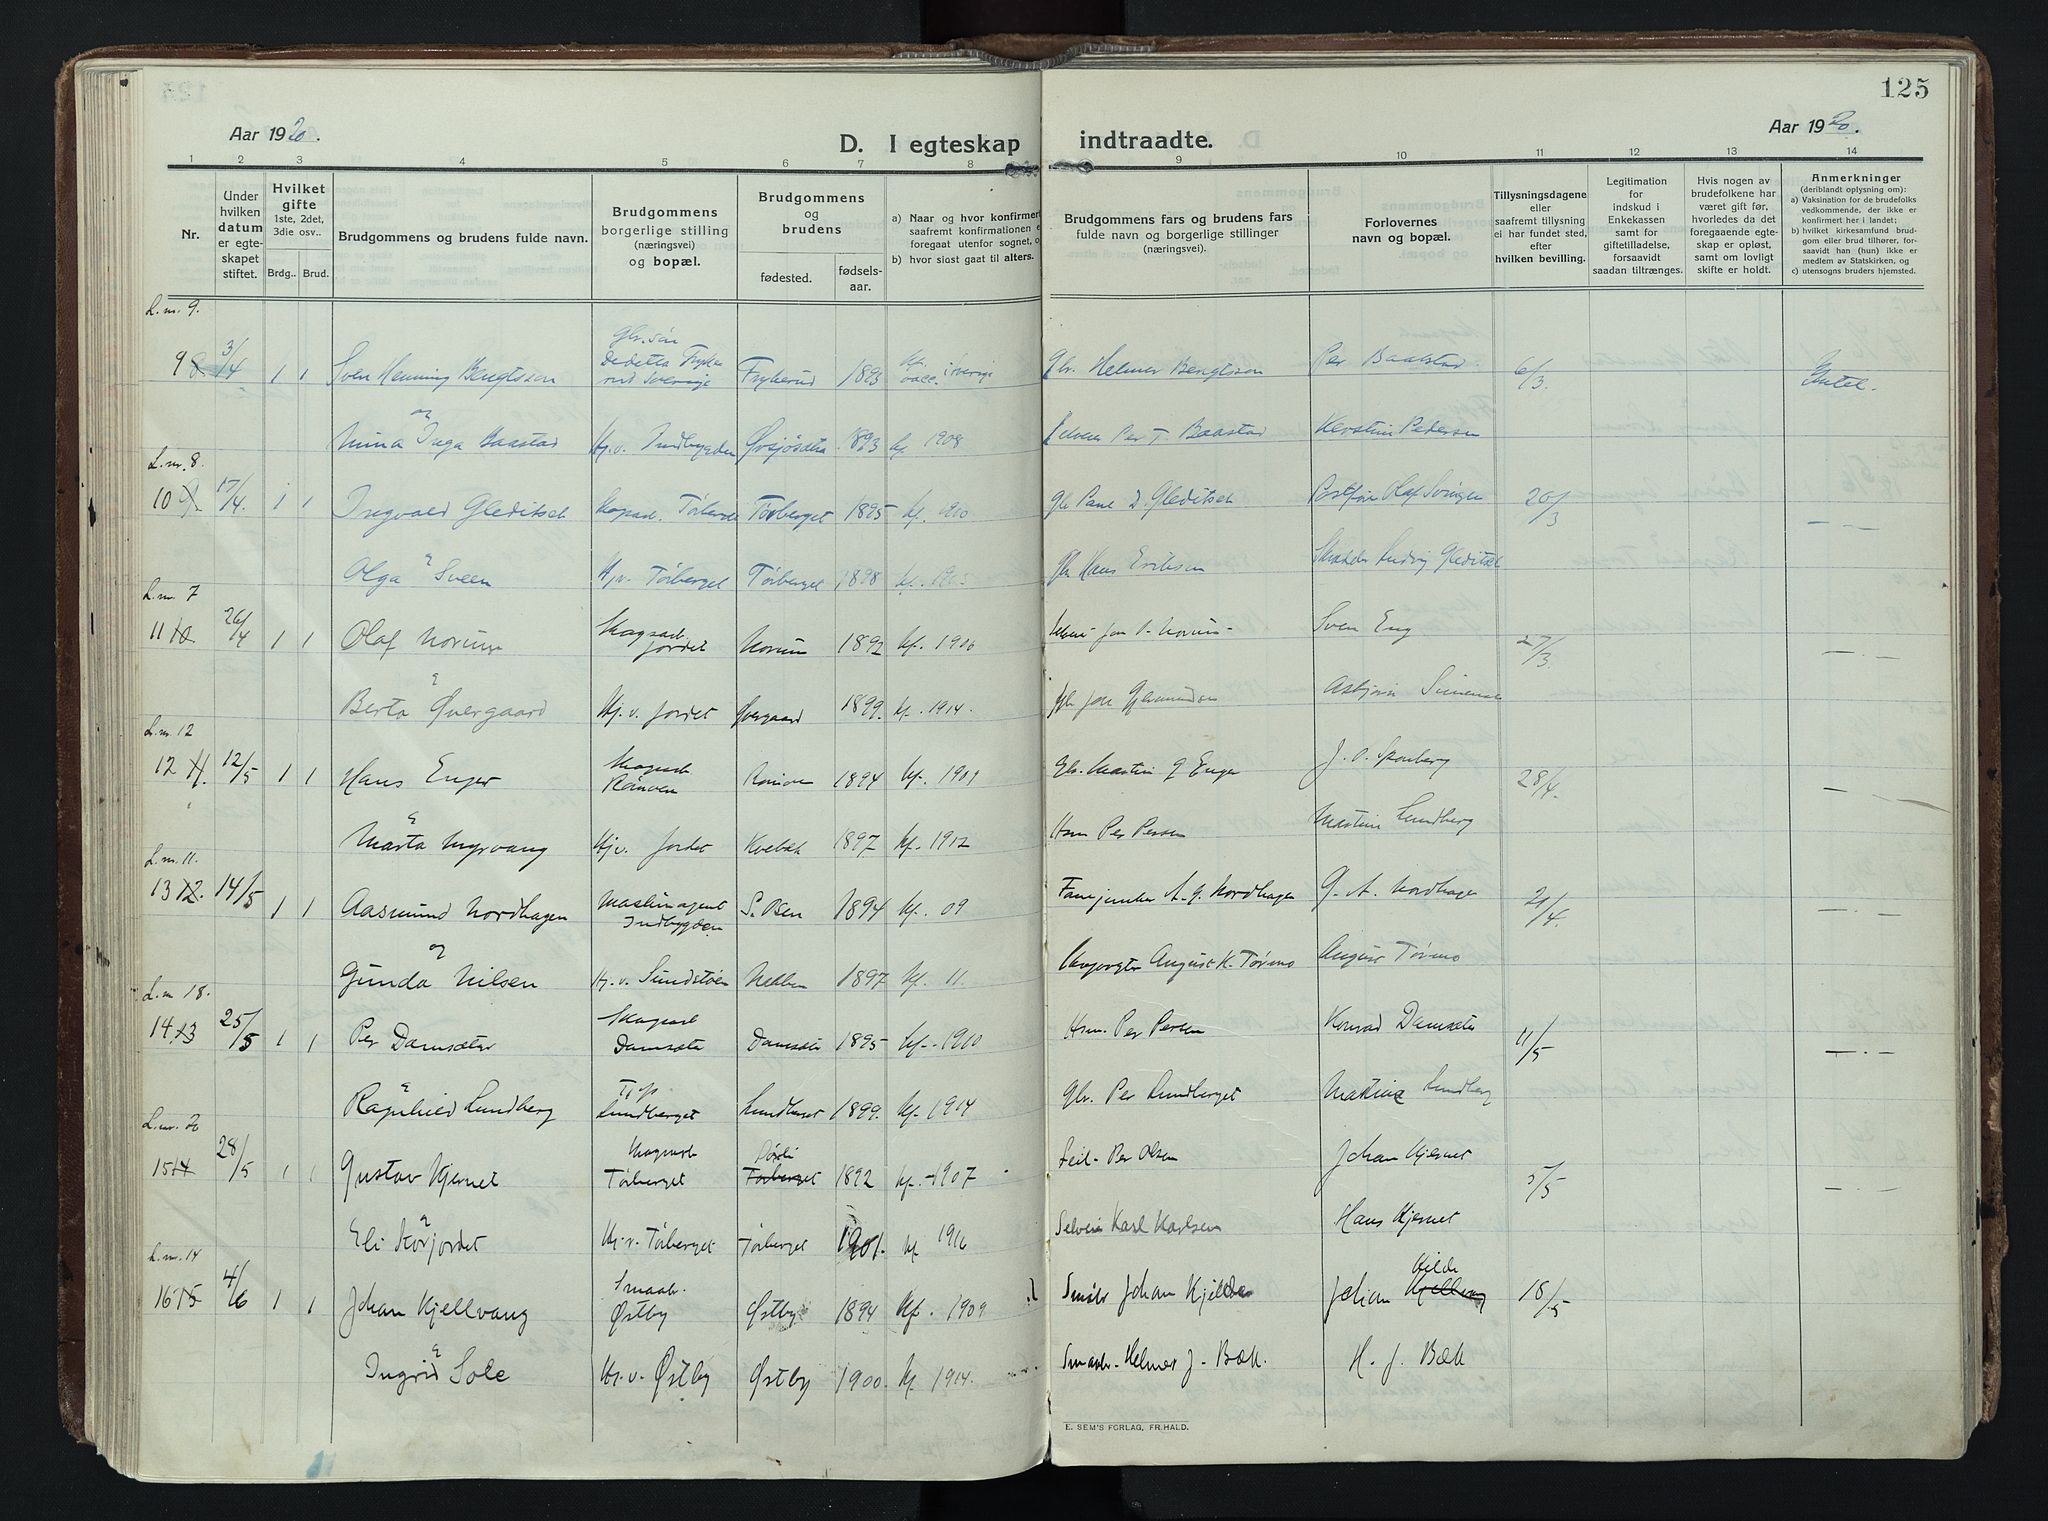 125
Aar 1920.
D. I egteskap indtraadte.
Aar 1920.
1 2 3 4 5 6 7 8 9 10 11 12 13 14
Nr.
Under hvilken datum er egteskapet stiftet.
Hvilket gifte 1ste, 2det, 3die osv..
Brdg.. Brud.
Brudgommens og brudens fulde navn.
Brudgommens borgerlige stilling (næringsvei) og bopæl.
Brudgommens og brudens
fødested. fødselsaar.
a) Naar og hvor konfirmert saafremt konfirmationen e foregaat utenfor sognet, o
b) hvor sidst gaat til alters.
Brudgommens fars og brudens fars fulde navn og borgerlige stillinger (næringsvei).
Forlovernes navn og bopæl.
Tillysningsdagene eller saafremt tillysning ei har fundet sted, efter hvilken bevilling.
Legitimation for indskud i Enkekassen samt for giftetilladelse, forsaavidt saadan tiltrænges.
Hvis nogen av brudefolkene har været gift før, hvorledes da det foregaaende egteskap er opløst, samt om lovligt skifte er holdt.
Anmerkninger (deriblandt oplysning om):
a) Vaksination for de brudefolks vedkommende, der ikke er konfirmert her i landet;
b) hvilket kirkesamfund brudgom eller brud tilhører, forsaavidt han (hun) ikke er medlem av Statskirken, og
c) utensogns bruders hjemsted.
L. nr. 9.
9 3/4 1 1 Sven Henning Bengtsson Gbr. søn Sverige Frykerud 1893 Gbr. Helmer Bengtsson Per Baastad. 6/3.
og
Nina Inga Baastad Hj. v. Indbygden 1893 kf. 1908 Selveier Per T. Baastad Kerstin Pedersen
L. nr. 8.
10 17/4. 1 1 Ingvald Gleditsch Skogsarb. Tørberget Tørberget 1895 kf. 1910 Olaf Svingen 20/3 — —
&
Olga Sveen Hj. v. Tørberget Tørberget 1898 kf. Gbr. Hans Eriksen Ludvig Gleditsch
L. nr. 7
11 10. 26/4 1 1 Olaf Norum Skogsarb. Jordet Norum 1892 kf. 1906 Norum Sven Eng 27/3. — —
&
Berta Øvergaard Hj. v. Jordet Øvergaard 1899. kf. 1914. Asbjørn Simensen
L. nr. 12
12 11. 12/5 1 1 Hans Enger Skogsarb. 1894 kf. 1909 Gbr. Martin G Enger J. O. Sponberg 28/4. —
&
Marta Myrvang Hj. v. Jordet Kvebæk 1897 kf. 1912 Hsm Per Persen Martin Lundberg
L. nr. 11.
13 12. 14/5 1 1 Aasmund Nordhagen Maskinagent Indbygden S. Osen 1894 kf. 09 Fanejunker A. G. Nordhagen G. A. Nordhagen 21/4. — —
og
Gunda Nilsen Hj. v. Sundstøen 1897 kf. 11. August K. Tørmo August Tørmo
L. nr 18.
14 13 25/5 1 1 Per Damsæter Skogsarb Damsæter Damsæter 1895 kf. 1910 Hsm. Per Persen Konrad Damsæter 11/5 — —
&
Ragnhild Lundberg Lundberget Lundberget 1899. kf. 1914 Gbr. Per Lundberget Martin Lundberg
L. nr. 20
15 14 28/5 1 1 Gustav Kjernet Skogsarb Tørberget Tørberget 1892 kf. 1907 Per Olsen Johan Kjernet 5/5 — —
&
Eli Storjordet Hj. v. Tørberget Tørberget 1901. kf 1916 Selveier Karl Karlsen Hans Kjernet
L. nr. 14
16 15 4/6 1 1 Johan Kjellvang Smaabr. Østby Østby 1894 kf. 1909 Smbr Johan Kjilde Johan Kjellvang Kilde 18/5
&
Ingrid Sole Hj. v. Østby Østby 1900. kf 1914. Smaabr. Helmer J. Bæk. H. J. Bæk
E. SEM'S FORLAG, FR.HALD.